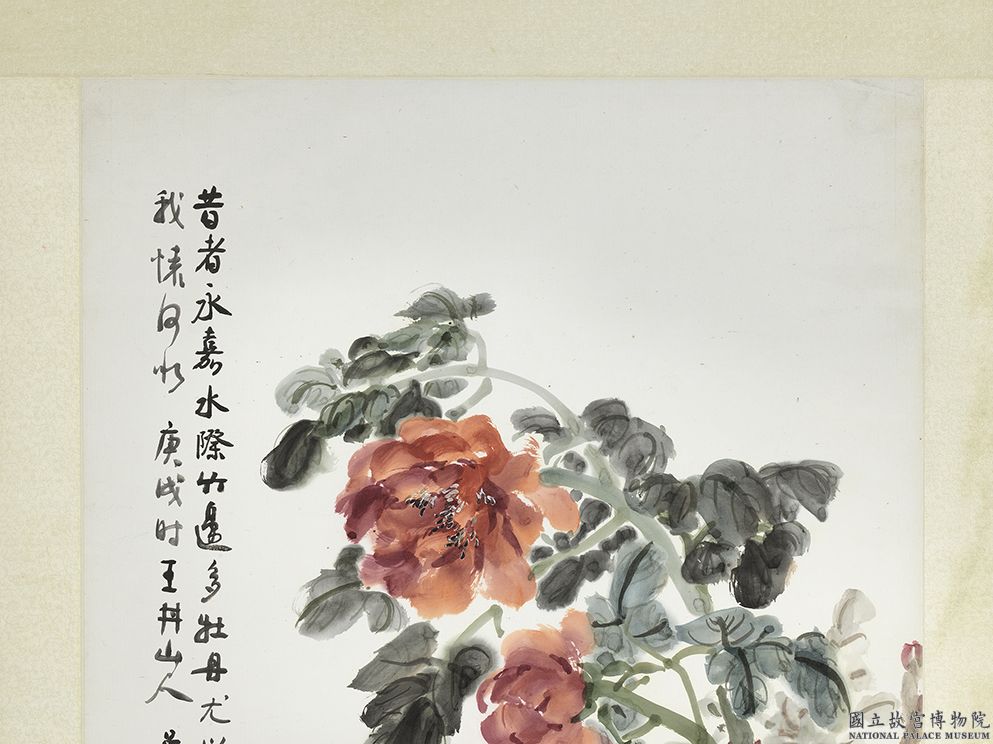 昔者永嘉水際竹邊多牡丹尤
我懷 庚戌时 山人
國立故宮博物院
NATIONAL PALACE MUSEUM